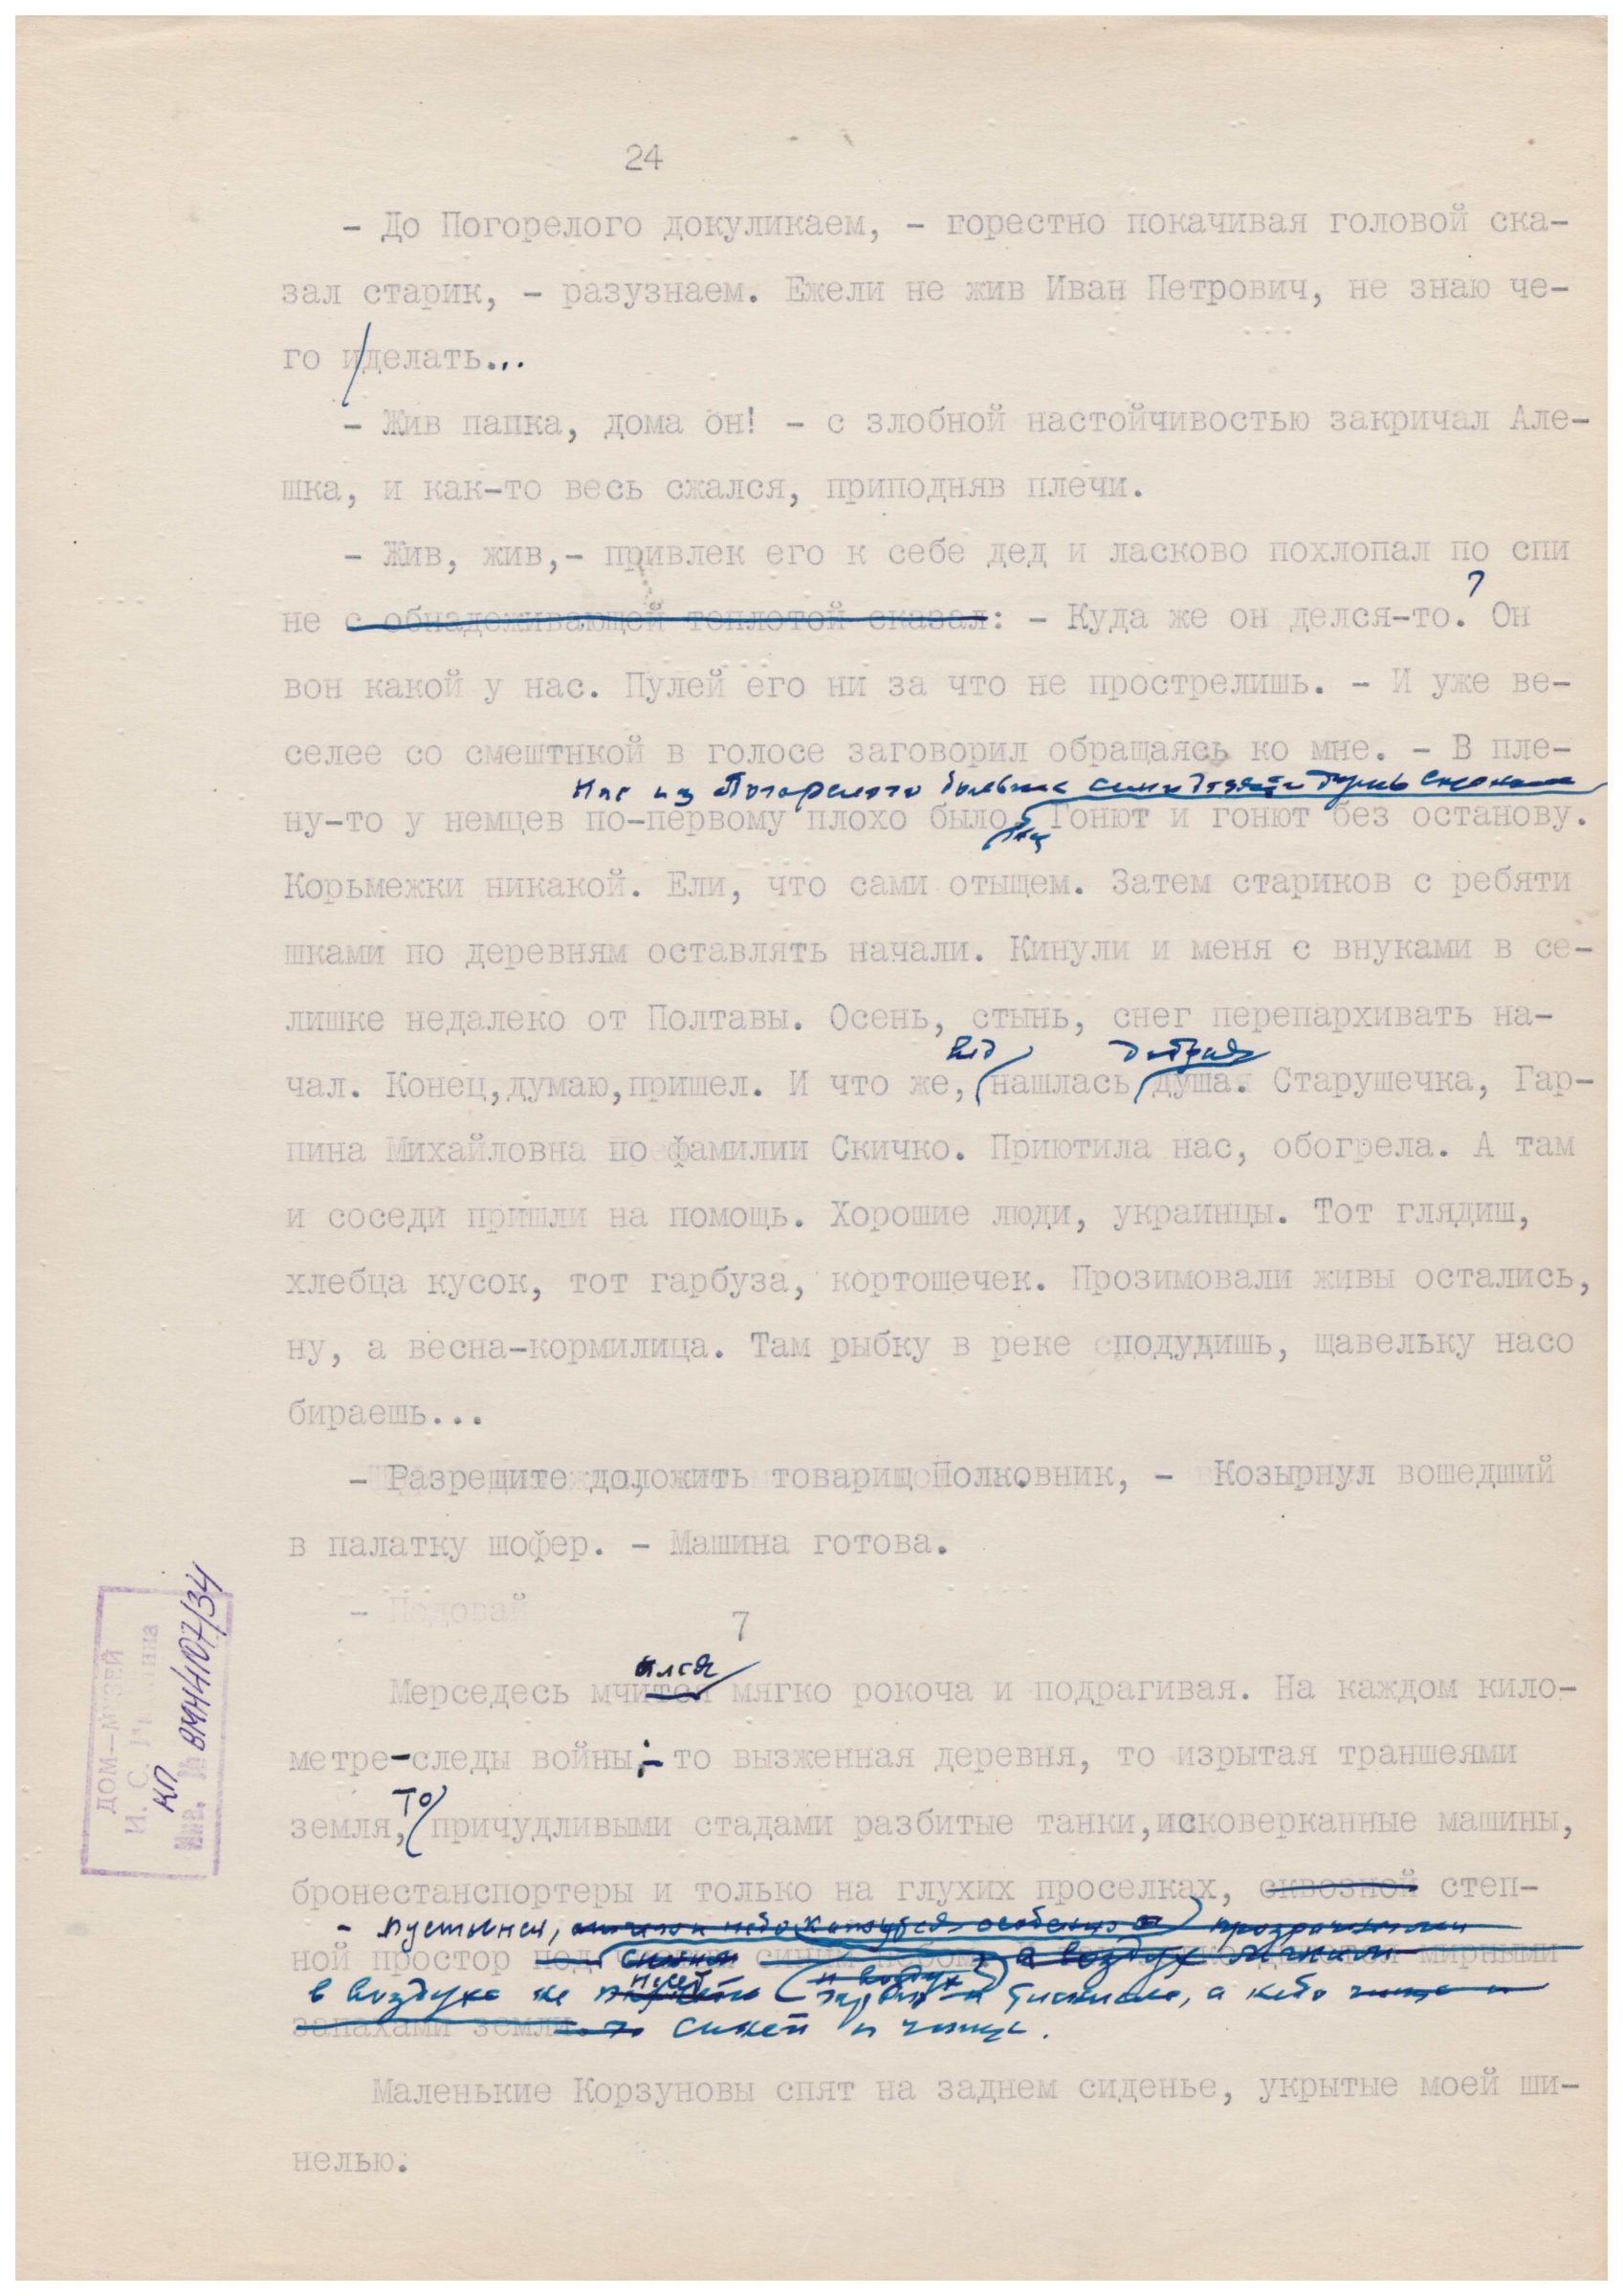 24
- До Погорелого докуликаем, - горестно покачивая головой ска-
зал старик, - разузнаем. Ежели не жив Иван Петрович, не знаю че-
го и делать...
- Жив папка, дома он! - с злобной настойчивостью закричал Але-
шка, и как-то весь сжался, приподняв плечи.
- Жив, жив,- привлек его к себе дед и ласково похлопал по спи
?
не с обнадеживающей теплотой сказал: - Куда же он делся-то. Он
вон какой у нас. Пулей его ни за что не прострелишь. - И уже ве-
селее со смештнкой в голосе заговорил обращаясь ко мне. - В пле-
Нас из Погорелого
ну-то у немцев по-первому плохо было. Гонют и гонют без останову.
Корьмежки никакой. Ели, что сами отыщем. Затем стариков с ребяти
шками по деревням оставлять начали. Кинули и меня с внуками в се-
лишке недалеко от Полтавы. Осень, стынь, снег перепархивать на-
добрая
чал. Конец,думаю,пришел. И что же, нашлась душа. Старушечка, Гар-
пина Михайловна по фамилии Скичко. Приютила нас, обогрела. А там
и соседи пришли на помощь. Хорошие люди, украинцы. Тот глядиш,
хлебца кусок, тот гарбуза, кортошечек. Прозимовали живы остались,
ну, а весна-кормилица. Там рыбку в реке сподудишь, щавельку насо
бираешь...
- Разрешите доложить товарищ Полковник, - Козырнул вошедший
в палатку шофер. - Машина готова.
- Подовай
7
лся
Мерседесь мчится мягко рокоча и подрагивая. На каждом кило-
метре-следы войны;- то вызженная деревня, то изрытая траншеями
то
земля, причудливыми стадами разбитые танки,исковерканные машины,
бронестанспортеры и только на глухих проселках, сквозной степ-
- пустынен,
ной простор под синим небом а воздух мирными
в воздухе не и воздух а небо
запахами земли синей и чище.
Маленькие Корзуновы спят на заднем сиденье, укрытые моей ши-
нелью.
ДОМ-МУЗЕЙ
И. С.
КП ВМН4107/34
Инв. №